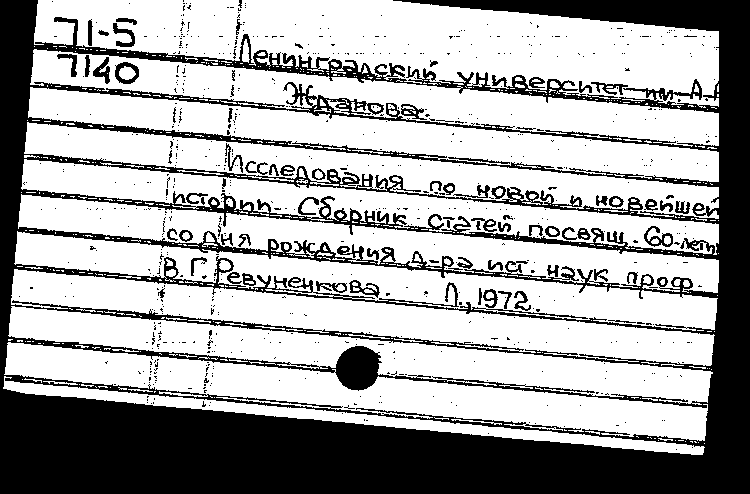 71-5
7140
Ленинградский университет им. А.А
Жданова.
Исследования по новой и новейшей
истории. Сборник статей, посвящ. 60-лети
со дня рождения д-ра ист. наук, проф.
В.Г. Ревуненкова. Л., 1972.